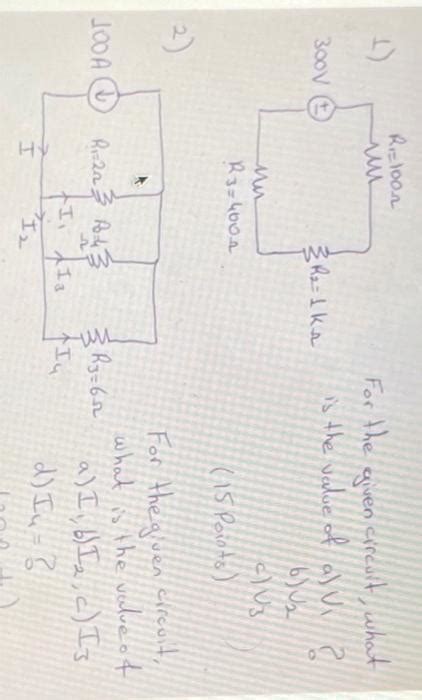 1)
R1=100Ω
300V
R2=1KΩ
R3=400Ω
For the given circuit, what
is the value of a) V1 ?
b) V2
c) V3
(15 Points)
2)
100A
R1=2Ω
Ω
R3=6Ω
I
I1
I2
I3
I4
For the given circuit,
what is the value of
a) I, b) I2, c) I3
d) I4 = ?